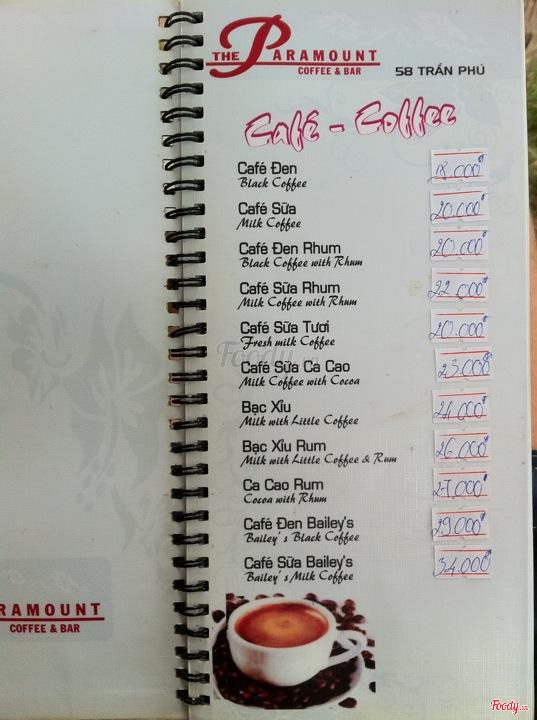 THE PARAMOUNT
COFFEE & BAR
58 TRẦN PHÚ
Café - Coffee
Café Đen 18.000đ
Black Coffee
Café Sữa 20.000đ
Milk Coffee
Café Đen Rhum 20.000đ
Black Coffee with Rhum
Café Sữa Rhum 22.000đ
Milk Coffee with Rhum
Café Sữa Tươi 20.000đ
Fresh milk Coffee
Foody.vn
Café Sữa Ca Cao 23.000đ
Milk Coffee with Cocoa
Bạc Xỉu 24.000đ
Milk with Little Coffee
Bạc Xỉu Rum 26.000đ
Milk with Little Coffee & Rum
Ca Cao Rum 27.000đ
Cocoa with Rhum
Café Đen Bailey's 29.000đ
Bailey's Black Coffee
Café Sữa Bailey's 34.000đ
Bailey's Milk Coffee
RAMOUNT
COFFEE & BAR
Foody.vn